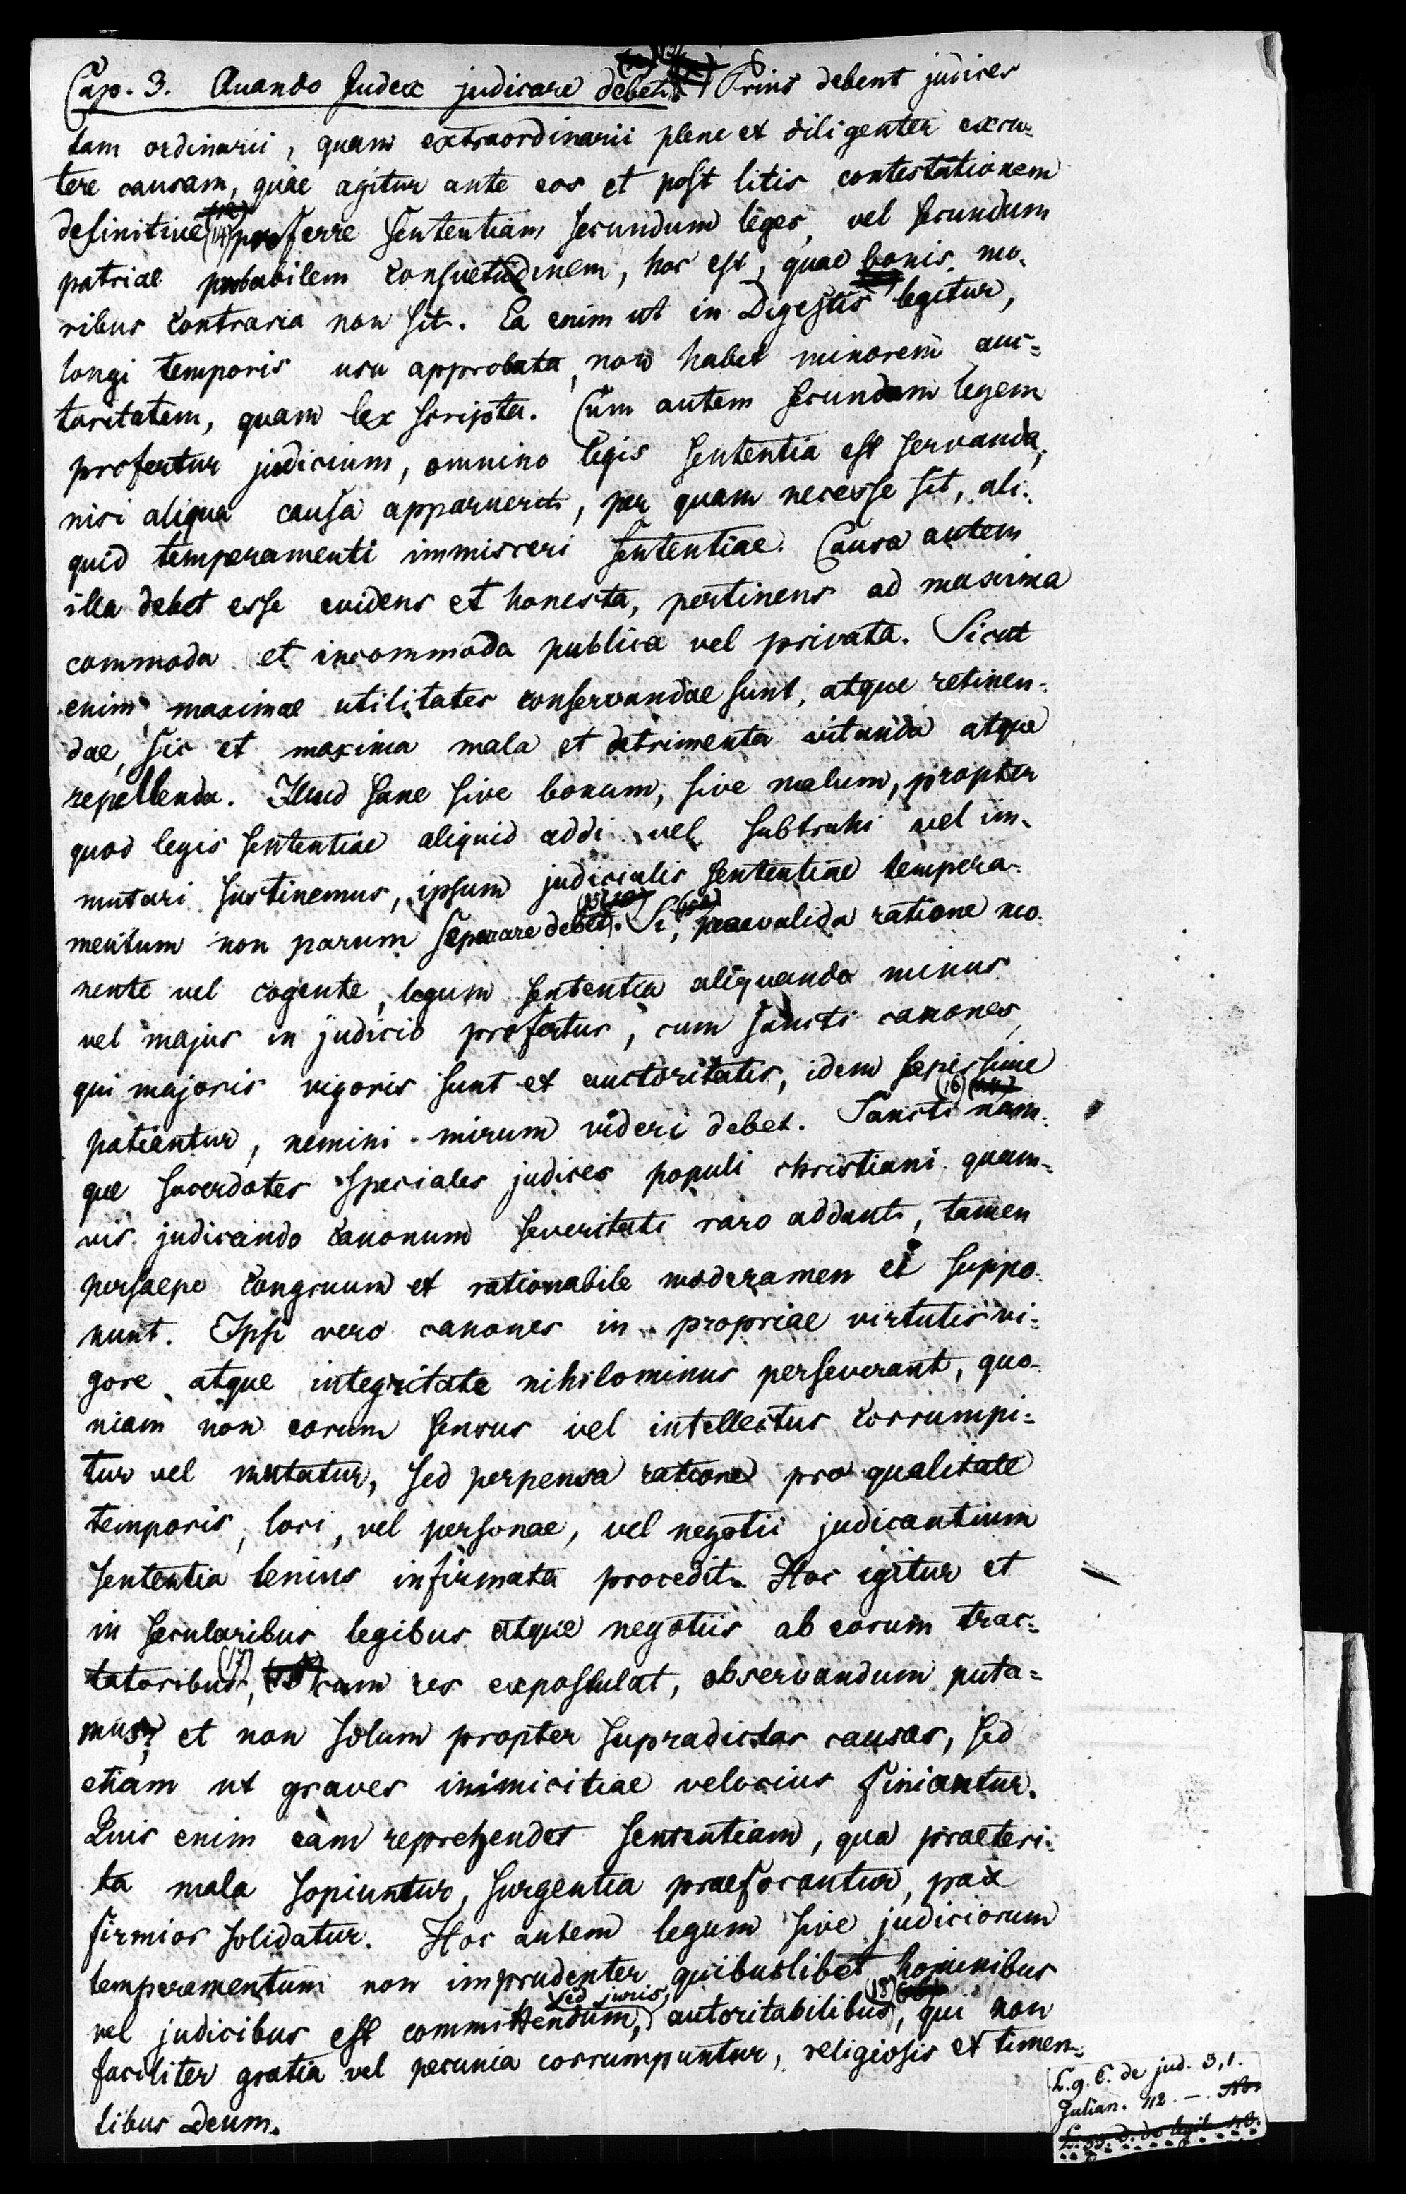 Cap. 3. Quando Judex judicare debet. Prius debent judices
tam ordinarii, quam extraordinarii plene et diligenter excu-
tere causam, quae agitur ante eos et post litis contestationem
definitive (14) proferre sententiam secundum leges, vel secundum
patriae probabilem consuetudinem, hoc est, quae bonis mo-
ribus contraria non sit. Ea enim ut in Digestis legitur,
longi temporis usu approbata, non habet minorem auc=
toritatem, quam lex scripta. Cum autem secundum legem
profertur judicium, omnino legis sententia est servanda,
nisi aliqua causa apparuerit, per quam necesse sit, ali-
quid temperamenti immisceri sententiae. Causa autem
illa debet esse evidens et honesta, pertinens ad maxima
commoda et incommoda publica vel privata. Sicut
enim maximae utilitates conservandae sunt, atque retinen-
dae, sic et maxima mala et detrimenta vitanda atque
repellenda. Illud sane sive bonum, sive malum, propter
quod legis sententiae aliquid addi vel subtrahi vel im-
mutari sustinemus, ipsum judicialis sententiae tempera-
mentum non parum separare debet. Si, praevalida ratione mo-
nente vel cogente, legum sententia aliquando minus
vel majus in judicio profertur, cum sancti canones,
qui majoris vigoris sunt et auctoritatis, idem sepissime
patiantur, nemini mirum videri debet. Sancti (16) nam-
que sacerdotes speciales judices populi christiani quam-
vis judicando canonum severitati raro addant, tamen
persaepe congruum et rationabile moderamen ei suppo-
nunt. Ipsi vero canones in propriae virtutis vi=
gore atque integritate nihilominus perseverant, quo-
niam non eorum sensus vel intellectus corrumpi=
tur vel mutatur, sed perpensa ratione pro qualitate
temporis, loci, vel personae, vel negotii judicantium
sententia lenius infirmata procedit. Hoc igitur et
in secularibus legibus atque negotiis ab eorum trac=
tatoribus (17), cum res expostulat, observandum puta=
mus, et non solum propter supradictas causas, sed
etiam ut graves inimicitiae velocius finiantur.
Quis enim eam reprehendet sententiam, qua praeteri-
ta mala sopiuntur, surgentia praefocantur, pax
firmior solidatur. Hoc autem legum sive judiciorum
temperamentum non imprudenter quibuslibet hominibus
vel judicibus est committendum, sed juris, autoritabilibus (18), qui non
faciliter gratia vel pecunia corrumpuntur, religiosis et timen=
tibus Deum.
L. 9. C. de jud. 3, 1.
Julian. 112. —